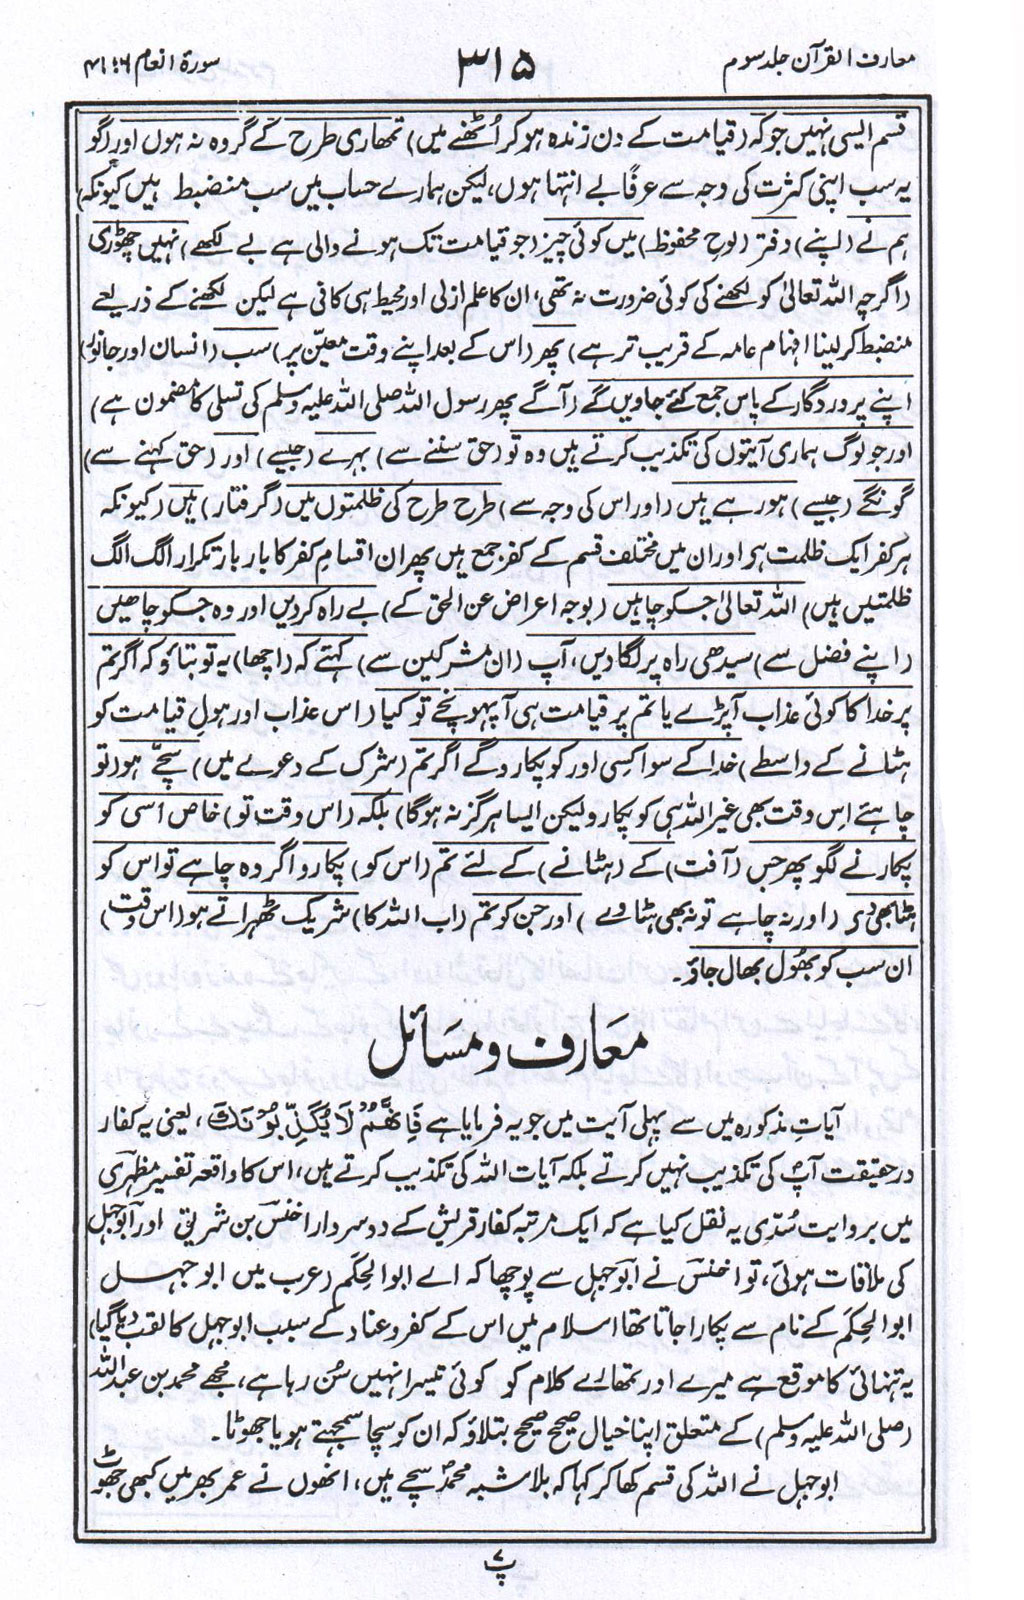 معارف القرآن جلد سوم
۳۱۵
سورۃ انعام ۶ : ۴۱
قسم ایسی نہیں جو کہ (قیامت کے دن زندہ ہو کر اُٹھنے میں) تمھاری طرح کے گروہ نہ ہوں اور (گو
یہ سب اپنی کثرت کی وجہ سے عرفًا بے انتہا ہوں، لیکن ہمارے حساب میں سب منضبط ہیں کیونکہ)
ہم نے (اپنے) دفتر (لوحِ محفوظ) میں کوئی چیز (جو قیامت تک ہونے والی ہے بے لکھے) نہیں چھوڑی
(اگرچہ اللہ تعالیٰ کو لکھنے کی کوئی ضرورت نہ تھی، ان کا علم ازلی اور محیط ہی کافی ہے لیکن لکھنے کے ذریعے
منضبط کر لینا افہام عامہ کے قریب تر ہے) پھر (اس کے بعد اپنے وقت معیّن پر) سب (انسان اور جانور)
اپنے پروردگار کے پاس جمع کئے جاویں گے (آگے پھر رسول اللہ صلی اللہ علیہ وسلم کی تسلی کا مضمون ہے)
اور جو لوگ ہماری آیتوں کی تکذیب کرتے ہیں وہ تو (حق سننے سے) بہرے (جیسے) اور (حق کہنے سے)
گونگے (جیسے) ہو رہے ہیں (اور اس کی وجہ سے) طرح طرح کی ظلمتوں میں (گرفتار) ہیں (کیونکہ
ہر کفر ایک ظلمت ہے اور ان میں مختلف قسم کے کفر جمع ہیں پھر ان اقسامِ کفر کا بار بار تکرار الگ الگ
ظلمتیں ہیں) اللہ تعالیٰ جس کو چاہیں (بوجہ اعراض عن الحق کے) بے راہ کر دیں اور وہ جس کو چاھیں
(اپنے فضل سے) سیدھی راہ پر لگا دیں، آپ (ان مشرکین سے) کہئے کہ (اچھا) یہ تو بتاؤ کہ اگر تم
پر خدا کا کوئی عذاب آپڑے یا تم پر قیامت ہی آپہونچے تو کیا (اس عذاب اور ہولِ قیامت کو
ہٹانے کے واسطے) خدا کے سوا کسی اور کو پکارو گے اگر تم (شرک کے دعوے میں) سچّے ہو (تو
چاہئے اس وقت بھی غیر اللہ ہی کو پکارو لیکن ایسا ہرگز نہ ہوگا) بلکہ (اس وقت تو) خاص اسی کو
پکارنے لگو پھر جس (آفت) کے (ہٹانے) کے لئے تم (اس کو) پکارو اگر وہ چاہے تو اس کو
ہٹا بھی دے (اور نہ چاہے تو نہ بھی ہٹاوے) اور جن کو تم (اب اللہ کا) شریک ٹھہراتے ہو (اس وقت)
ان سب کو بھُول بھال جاؤ۔
معارف و مسائل
آیاتِ مذکورہ میں سے پہلی آیت میں جو یہ فرمایا ہے فَاِنَّهُمْ لَا يُكَذِّبُوْنَكَ، یعنی یہ کفار
درحقیقت آپؐ کی تکذیب نہیں کرتے بلکہ آیات اللہ کی تکذیب کرتے ہیں، اس کا واقعہ تفسیر مظہری
میں بروایت سُدّی یہ نقل کیا ہے کہ ایک مرتبہ کفار قریش کے دو سردار اخنس بن شریق اور ابوجہل
کی ملاقات ہوئی، تو اخنس نے ابوجہل سے پوچھا کہ اے ابوالحِکَم (عرب میں ابوجہل
ابوالحِکَم کے نام سے پکارا جاتا تھا اسلام میں اس کے کفر و عناد کے سبب ابوجہل کا لقب دیا گیا)
یہ تنہائی کا موقع ہے میرے اور تمھارے کلام کو کوئی تیسرا نہیں سُن رہا ہے، مجھے محمد بن عبداللہ
(صلی اللہ علیہ وسلم) کے متعلق اپنا خیال صحیح صحیح بتلاؤ کہ ان کو سچا سمجھتے ہو یا جھوٹا۔
ابوجہل نے اللہ کی قسم کھا کر کہا کہ بلاشبہ محمدؐ سچے ہیں، انھوں نے عمر بھر میں کبھی جھوٹ
پ ۷